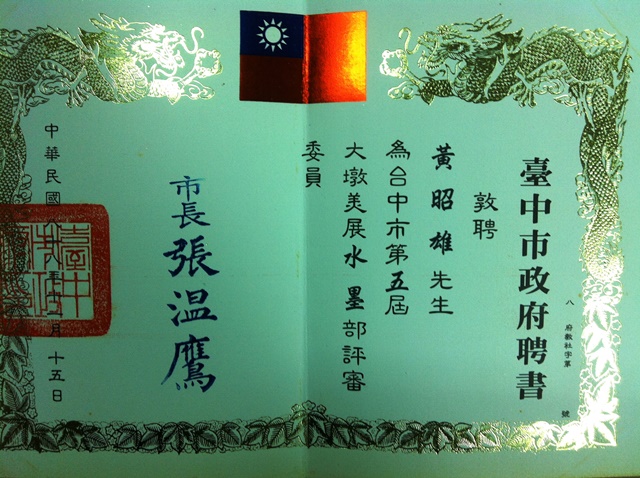 臺中市政府聘書
八 府教社字第 號
敦聘
黃昭雄先生
為台中市第五屆
大墩美展水墨部評審
委員
市長張温鷹
中華民國八十八年十二月十五日